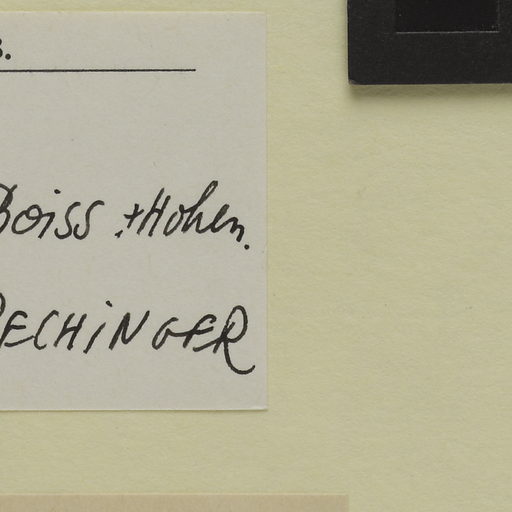 Boiss. + Hohen.
RECHINGER